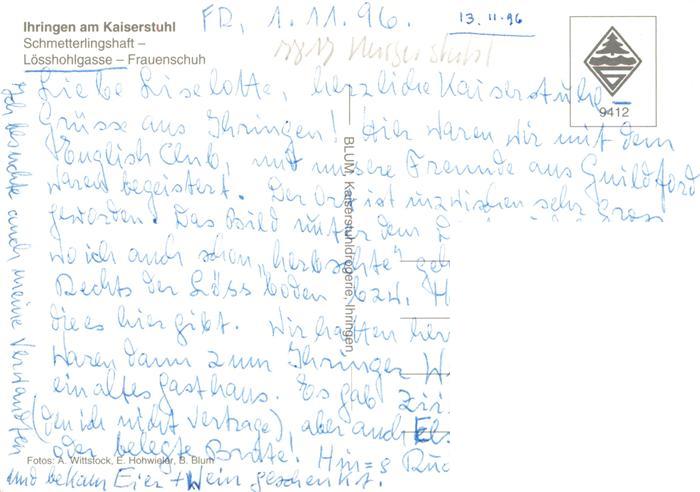 Ihringen am Kaiserstuhl
Schmetterlingshaft –
Lösshohlgasse – Frauenschuh
FR, 1.11.96.
13.11.96
9412
Liebe Liselotte, herzliche Kaiserstuhl-
Grüsse aus Ihringen! Hier waren wir mit dem
English Club, und unsere Freunde aus Guildford
waren begeistert. Der Ort ist inzwischen sehr gross
geworden. Das Bild unter dem
wo ich auch schon "herbschte"
Rechts der Lössboden bzw. H
die es hier gibt. Wir hatten
waren dann zum Ihringer W
ein altes Gasthaus. Es gab
(den ich nicht vertrage), aber auch
oder belegte Brote! Hin= &
Ich besuchte auch meine Verwandten
und bekam Eier + Wein geschenkt.
BLUM, Kaiserstuhldrogerie, Ihringen
Fotos: A. Wittstock, E. Hohwieler, B. Blum